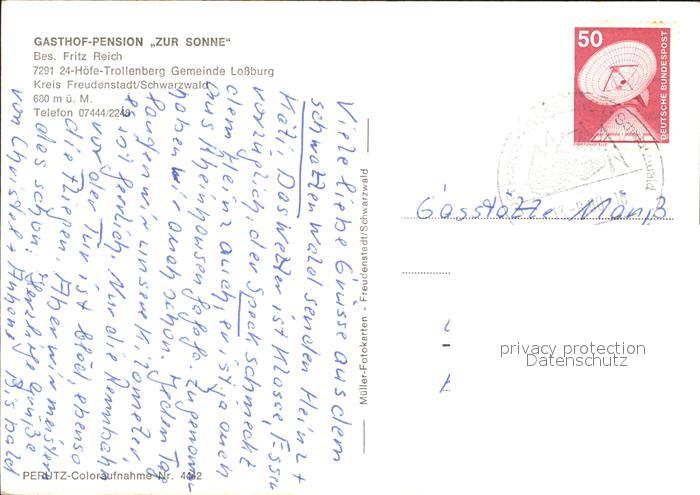 GASTHOF-PENSION „ZUR SONNE"
Bes. Fritz Reich
7291 24-Höfe-Trollenberg Gemeinde Loßburg
Kreis Freudenstadt/Schwarzwald
680 m ü. M.
Telefon 07444/2248
Viele liebe Grüsse aus dem
schwarzen Wald senden Heinz +
Käti. Das Wetter ist Klasse, Essen
vorzüglich, der Speck schmeckt
dem Heinz auch, er ist ja auch
aus Rheinhausen Zugenom-
haben wir auch schon. Jeden Tag
laufen wir unsere Kilometer,
es ist herrlich. Nur die Rennbahn
vor der Tür ist blöd, ebenso
die Fliegen. Aber wir meistern
das schon. Herzliche Grüße
von Christel + Bis bald
PERUTZ-Coloraufnahme Nr. 4442
Müller-Fotokarten - Freudenstadt/Schwarzwald
50
DEUTSCHE BUNDESPOST
ERDFUNKSTELLE
Gaststätte
privacy protection
Datenschutz